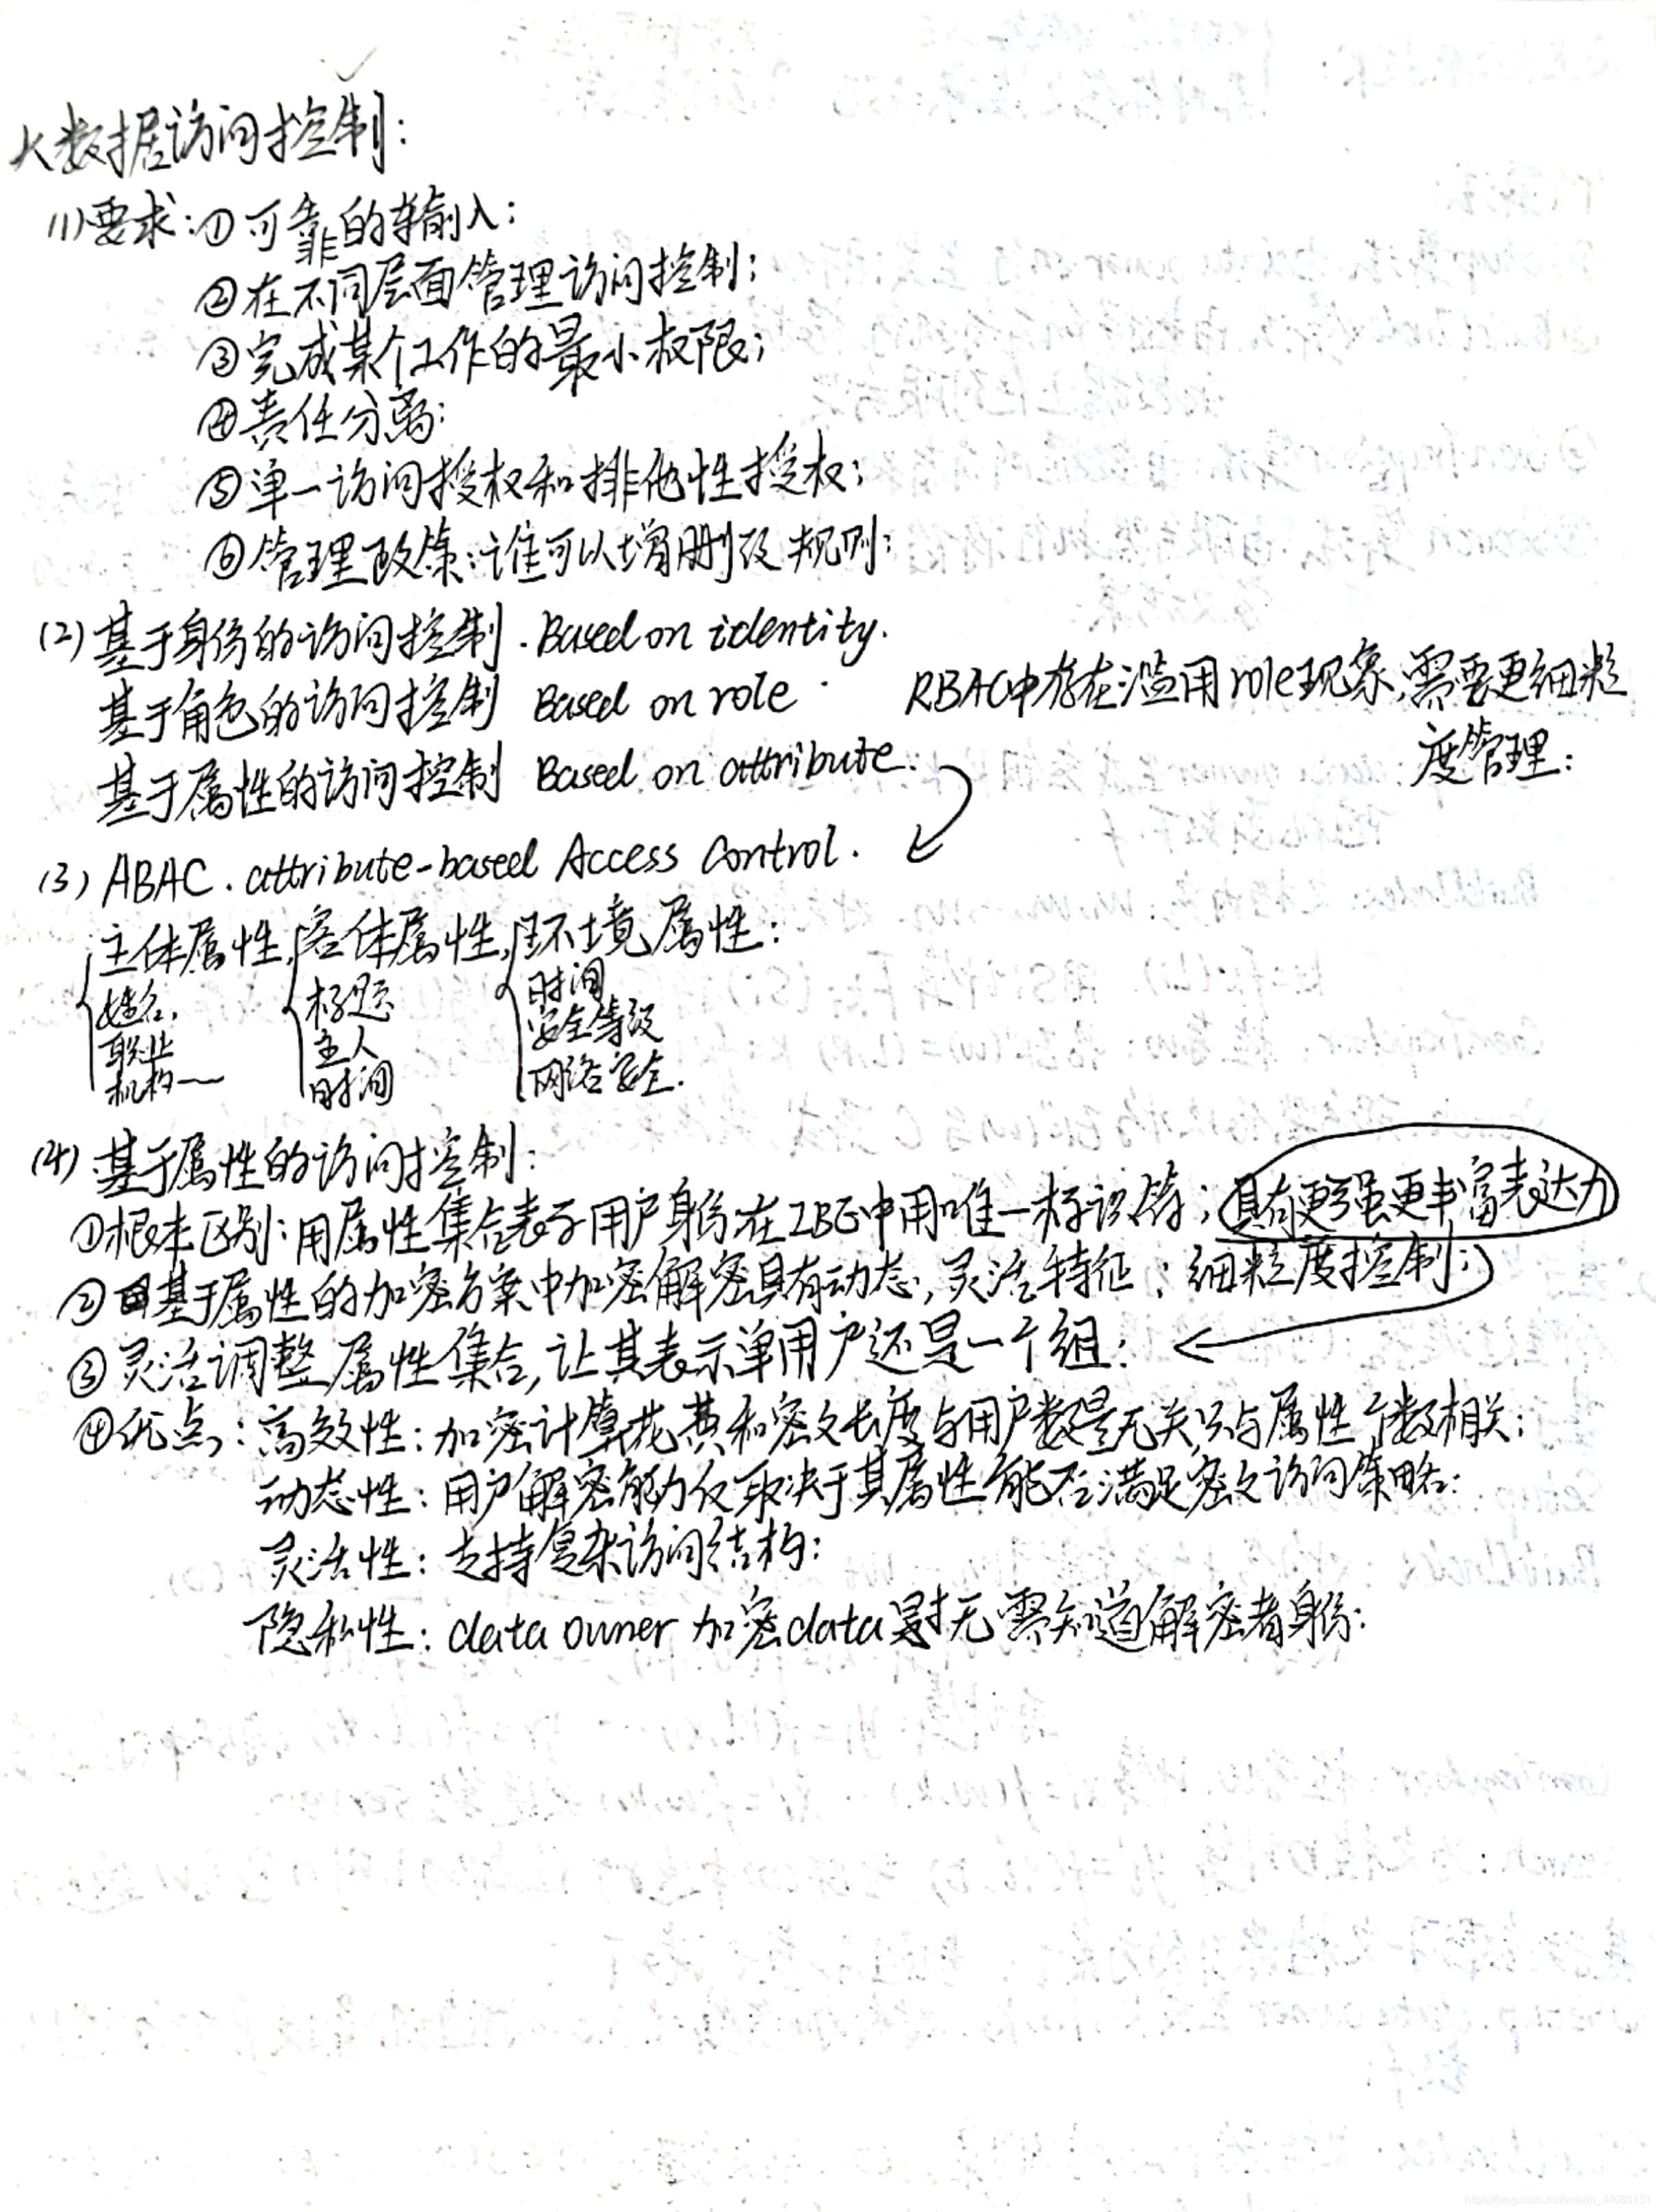 大数据访问控制:
(1)要求:①可靠的输入;
②在不同层面管理访问控制;
③完成某个工作的最小权限;
④责任分离;
⑤单一访问授权和排他性授权;
⑥管理政策:谁可以增删改规则;
(2)基于身份的访问控制. Based on identity.
基于角色的访问控制 Based on role. RBAC中存在滥用role现象,需要更细粒
度管理;
基于属性的访问控制 Based on attribute.
(3) ABAC. attribute-based Access Control.
主体属性, 客体属性, 环境属性:
姓名, 标题 时间
职业 主人 安全等级
机构 时间 网络安全.
(4) 基于属性的访问控制:
①根本区别:用属性集合表示用户身份,在IBE中用唯一标识符;具有更强更丰富表达力
②基于属性的加密方案中加密解密具有动态,灵活特征;细粒度控制;
③灵活调整属性集合,让其表示单用户还是一个组;
④优点:高效性:加密计算花费和密文长度与用户数量无关,只与属性个数相关;
动态性:用户解密能力仅取决于其属性能否满足密文访问策略;
灵活性:支持复杂访问结构;
隐私性:data owner 加密data时无需知道解密者身份;
https://blog.csdn.net/weixin_44080131